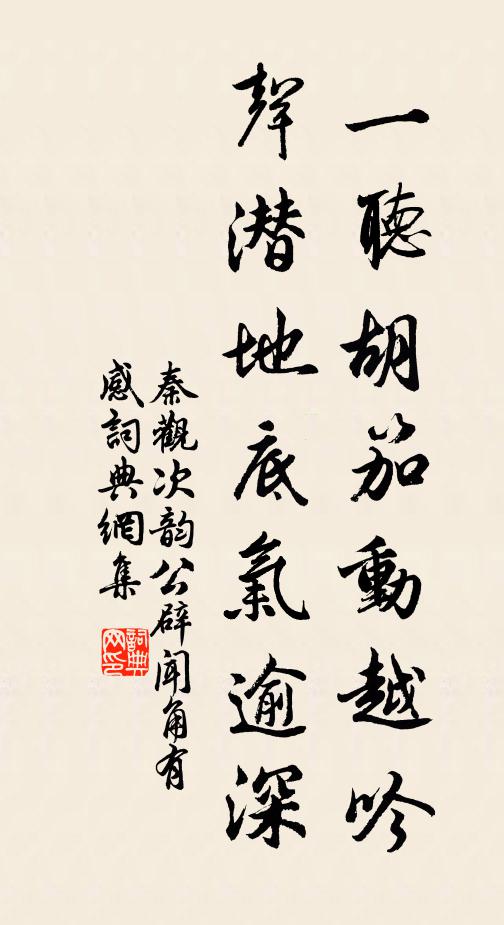 一聽胡笳動越吟
聲潜地底氣逾深
秦觀次韵公辟聞角有
感詞典網集
詞典
网印